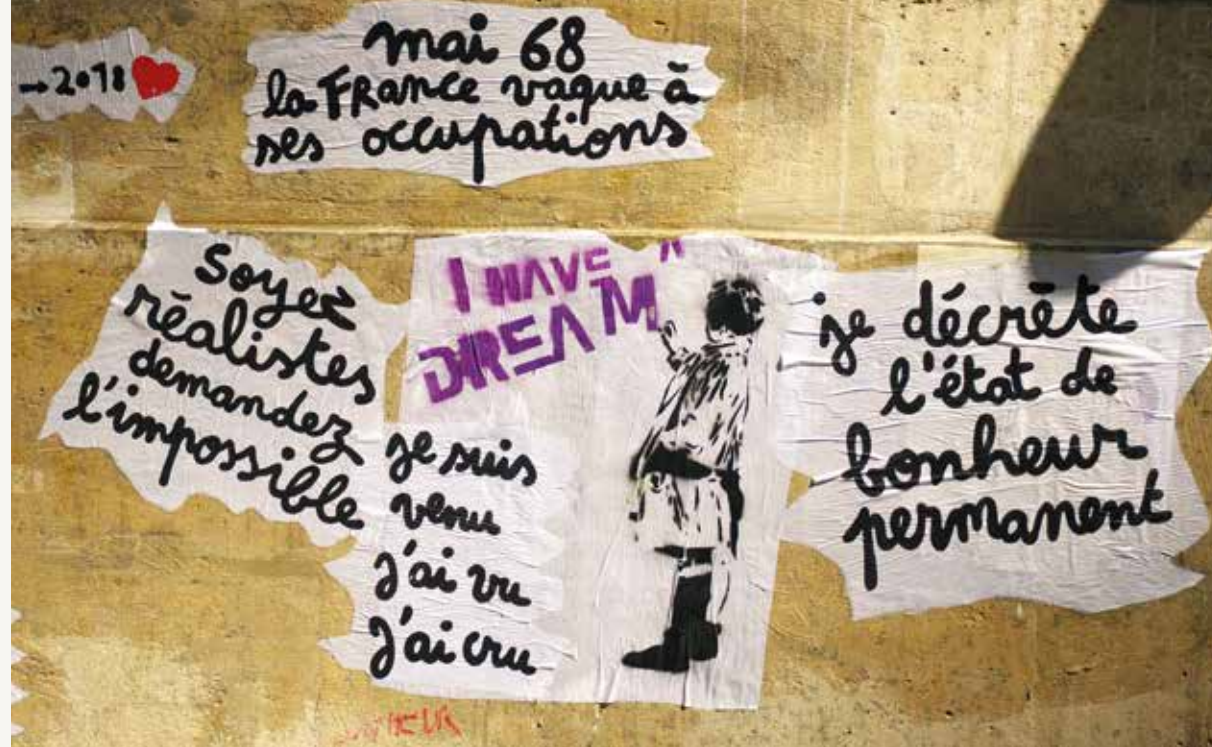 →2018
mai 68
la FRance vaque à
ses occupations
Soyez
réalistes
demandez
l'impossible
I HAVE A
DREAM
je suis
venu
j'ai vu
j'ai cru
je décrète
l'état de
bonheur
permanent